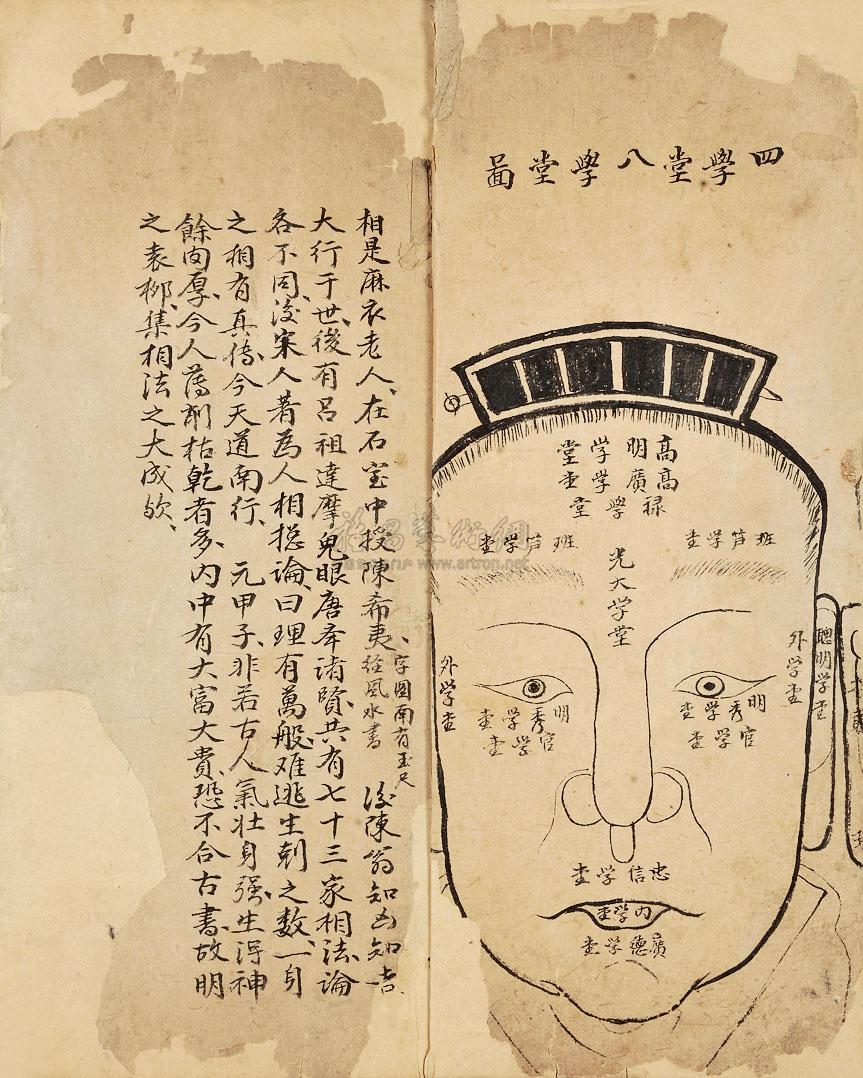 四學堂八學堂圖
高明學堂
高廣學堂
禄學堂
班笋學堂
班笋學堂
光大学堂
外学堂
外学堂
聰明学堂
明秀学堂
官学堂
明秀学堂
官学堂
忠信学堂
内学堂
廣德学堂
相是麻衣老人、在石室中授陳希夷、字圖南有玉尺經風水書後陳翁知凶知吉、
大行于世、後有呂祖達摩鬼眼唐举諸賢、共有七十三家相法、論
各不同、後宋人著為人相揔論、曰理有萬般、难逃生剋之数、一身
之相有真傳、今天道南行、元甲子、非若古人氣壮身强、生得神
餘肉厚、今人薄削枯乾者多、内中有大富大貴、恐不合古書、故明
之袁柳、集相法之大成欤、
雅昌藝術網
www.artron.net